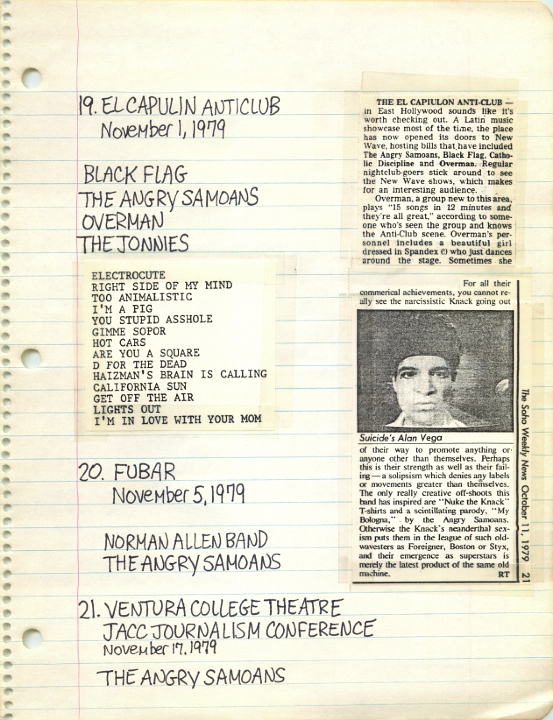 19. EL CAPULIN ANTICLUB
November 1, 1979
BLACK FLAG
THE ANGRY SAMOANS
OVERMAN
THE JONNIES
ELECTROCUTE
RIGHT SIDE OF MY MIND
TOO ANIMALISTIC
I'M A PIG
YOU STUPID ASSHOLE
GIMME SOPOR
HOT CARS
ARE YOU A SQUARE
D FOR THE DEAD
HAIZMAN'S BRAIN IS CALLING
CALIFORNIA SUN
GET OFF THE AIR
LIGHTS OUT
I'M IN LOVE WITH YOUR MOM
20. FUBAR
November 5, 1979
NORMAN ALLEN BAND
THE ANGRY SAMOANS
21. VENTURA COLLEGE THEATRE
JACC JOURNALISM CONFERENCE
November 17, 1979
THE ANGRY SAMOANS
THE EL CAPIULON ANTI-CLUB —
in East Hollywood sounds like it's
worth checking out. A Latin music
showcase most of the time, the place
has now opened its doors to New
Wave, hosting bills that have included
The Angry Samoans, Black Flag, Catho-
lic Discipline and Overman. Regular
nightclub-goers stick around to see
the New Wave shows, which makes
for an interesting audience.
Overman, a group new to this area,
plays "15 songs in 12 minutes and
they're all great," according to some-
one who's seen the group and knows
the Anti-Club scene. Overman's per-
sonnel includes a beautiful girl
dressed in Spandex © who just dances
around the stage. Sometimes she
For all their
commerical achievements, you cannot re-
ally see the narcissistic Knack going out
Suicide's Alan Vega
of their way to promote anything or
anyone other than themselves. Perhaps
this is their strength as well as their fail-
ing—a solipsism which denies any labels
or movements greater than themselves.
The only really creative off-shoots this
band has inspired are "Nuke the Knack"
T-shirts and a scintillating parody, "My
Bologna," by the Angry Samoans.
Otherwise the Knack's neanderthal sex-
ism puts them in the league of such old-
wavesters as Foreigner, Boston or Styx,
and their emergence as superstars is
merely the latest product of the same old
machine. RT
The Soho Weekly News October 11, 1979 21